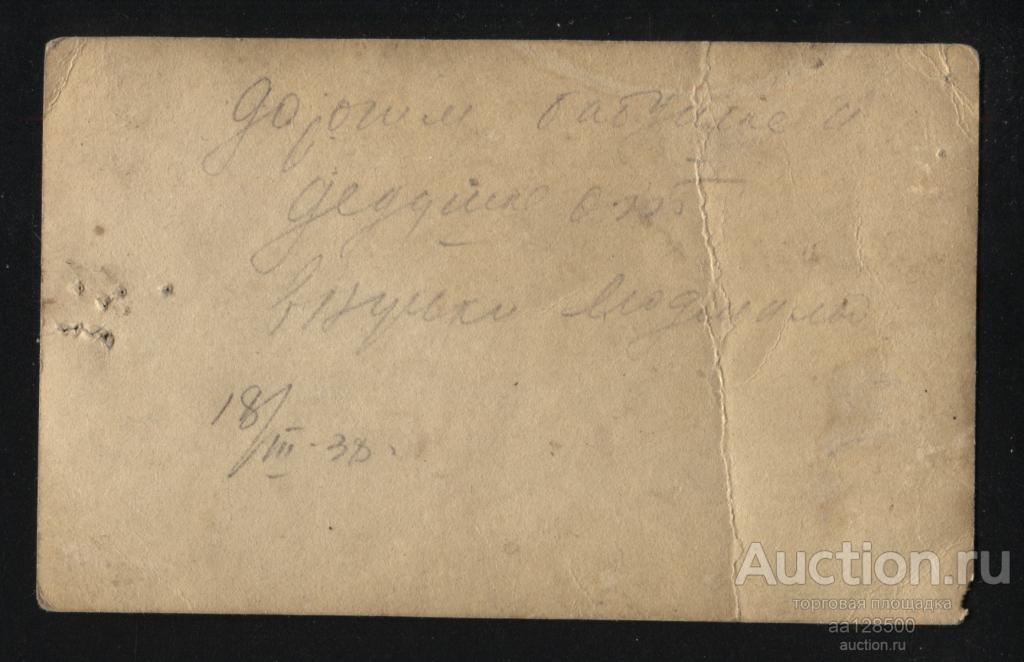 Дорогим бабушке и
дедушке от
внучки Людмилы
18/III-38.
Auction.ru
торговая площадка
aa128500
auction.ru